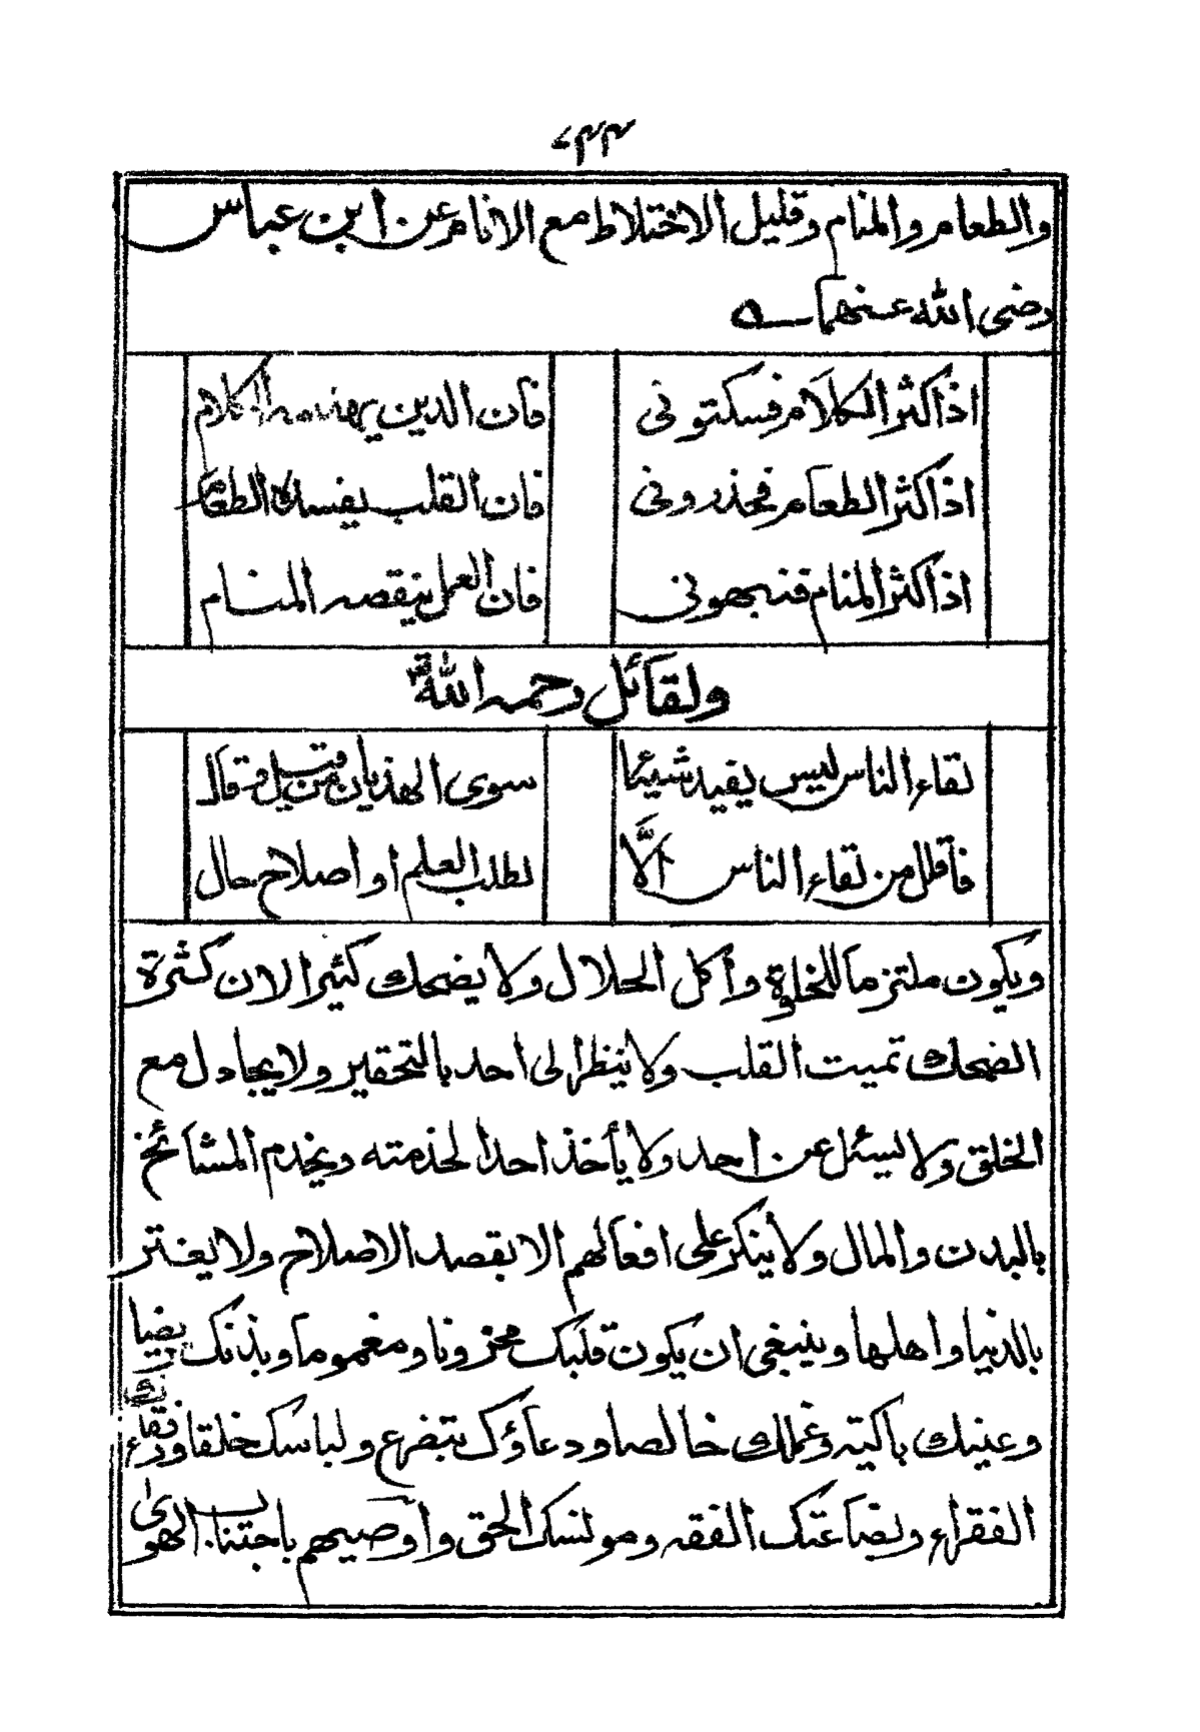 ٢٣٤
والطعام والمنام وقليل الاختلاط مع الانام عن ابن عباس
رضى الله عنهما ه
اذا كثر الكلام فسكتونى فان الدين يهدمه الكلام
اذا كثر الطعام فحذرونى فان القلب يفسده الطعام
اذا كثر المنام فنبهونى فان العمل ينقصه المنام
ولقائل رحمه الله
لقاء الناس ليس يفيد شيئا سوى الهذيان من قيل وقال
فأقلل من لقاء الناس الّا لطلب العلم او اصلاح حال
ويكون ملتزما للخلوة وأكل الحلال ولا يضحك كثيرا لان كثرة
الضحك تميت القلب ولا ينظر الى احد بالتحقير ولا يجادل مع
الخلق ولا يسئل عن احد ولا يأخذ احدا لخدمته ويخدم المشائخ
بالبدن والمال ولا ينكر على افعالهم الا بقصد الاصلاح ولا يغتر
بالدنيا واهلها وينبغى ان يكون قلبك محزونا ومغموما وبدنك
وعينك باكية وعملك خالصا ودعاؤك بتضرع ولباسك خلقا ورفقاءك
الفقراء وبضاعتك الفقه ومونسك الحق واوصيهم باجتناب الهوىٰ